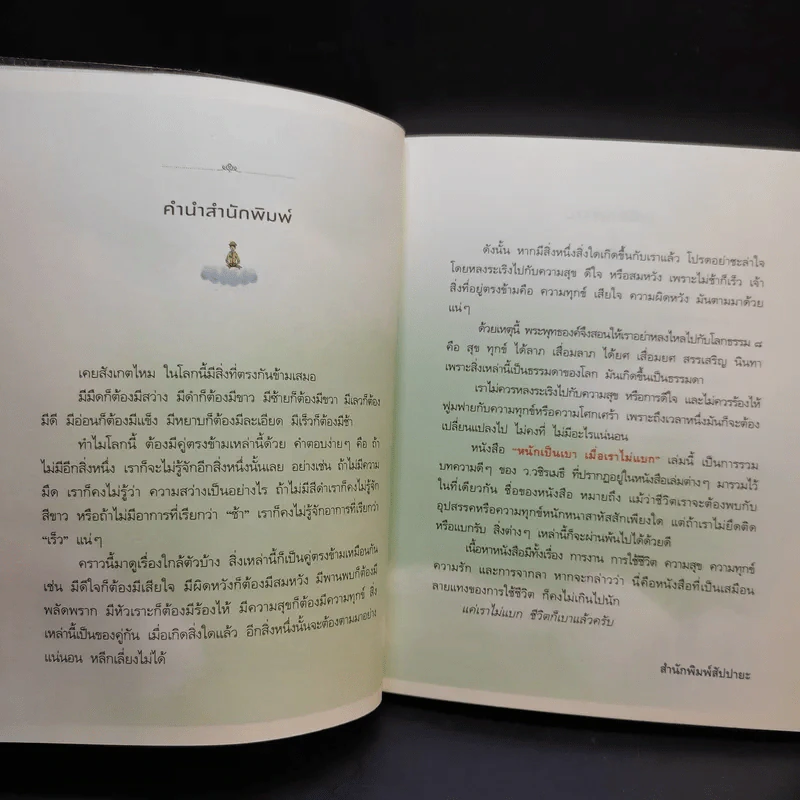 คำนำสำนักพิมพ์
เคยสังเกตไหม ในโลกนี้มีสิ่งที่ตรงกันข้ามเสมอ
มีมืดก็ต้องมีสว่าง มีดำก็ต้องมีขาว มีซ้ายก็ต้องมีขวา มีเลวก็ต้อง
มีดี มีอ่อนก็ต้องมีแข็ง มีหยาบก็ต้องมีละเอียด มีเร็วก็ต้องมีช้า
ทำไมโลกนี้ ต้องมีคู่ตรงข้ามเหล่านี้ด้วย คำตอบง่ายๆ คือ ถ้า
ไม่มีอีกสิ่งหนึ่ง เราก็จะไม่รู้จักอีกสิ่งหนึ่งนั้นเลย อย่างเช่น ถ้าไม่มีความ
มืด เราก็คงไม่รู้ว่า ความสว่างเป็นอย่างไร ถ้าไม่มีสีดำเราก็คงไม่รู้จัก
สีขาว หรือถ้าไม่มีอาการที่เรียกว่า “ช้า” เราก็คงไม่รู้จักอาการที่เรียกว่า
“เร็ว” แน่ๆ
คราวนี้มาดูเรื่องใกล้ตัวบ้าง สิ่งเหล่านี้ก็เป็นคู่ตรงข้ามเหมือนกัน
เช่น มีดีใจก็ต้องมีเสียใจ มีผิดหวังก็ต้องมีสมหวัง มีพานพบก็ต้องมี
พลัดพราก มีหัวเราะก็ต้องมีร้องไห้ มีความสุขก็ต้องมีความทุกข์ สิ่ง
เหล่านี้เป็นของคู่กัน เมื่อเกิดสิ่งใดแล้ว อีกสิ่งหนึ่งนั้นจะต้องตามมาอย่าง
แน่นอน หลีกเลี่ยงไม่ได้
ดังนั้น หากมีสิ่งหนึ่งสิ่งใดเกิดขึ้นกับเราแล้ว โปรดอย่าชะล่าใจ
โดยหลงระเริงไปกับความสุข ดีใจ หรือสมหวัง เพราะไม่ช้าก็เร็ว เจ้า
สิ่งที่อยู่ตรงข้ามคือ ความทุกข์ เสียใจ ความผิดหวัง มันตามมาด้วย
แน่ๆ
ด้วยเหตุนี้ พระพุทธองค์จึงสอนให้เราอย่าหลงใหลไปกับโลกธรรม ๘
คือ สุข ทุกข์ ได้ลาภ เสื่อมลาภ ได้ยศ เสื่อมยศ สรรเสริญ นินทา
เพราะสิ่งเหล่านี้เป็นธรรมดาของโลก มันเกิดขึ้นเป็นธรรมดา
เราไม่ควรหลงระเริงไปกับความสุข หรือการดีใจ และไม่ควรร้องไห้
ฟูมฟายกับความทุกข์หรือความโศกเศร้า เพราะถึงเวลาหนึ่งมันก็จะต้อง
เปลี่ยนแปลงไป ไม่คงที่ ไม่มีอะไรแน่นอน
หนังสือ “หนักเป็นเบา เมื่อเราไม่แบก” เล่มนี้ เป็นการรวม
บทความดีๆ ของ ว.วชิรเมธี ที่ปรากฏอยู่ในหนังสือเล่มต่างๆ มารวมไว้
ในที่เดียวกัน ชื่อของหนังสือ หมายถึง แม้ว่าชีวิตเราจะต้องพบกับ
อุปสรรคหรือความทุกข์หนักหนาสาหัสสักเพียงใด แต่ถ้าเราไม่ยึดติด
หรือแบกรับ สิ่งต่างๆ เหล่านี้ก็จะผ่านพ้นไปได้ด้วยดี
เนื้อหาหนังสือมีทั้งเรื่อง การงาน การใช้ชีวิต ความสุข ความทุกข์
ความรัก และการจากลา หากจะกล่าวว่า นี่คือหนังสือที่เป็นเสมือน
ลายแทงของการใช้ชีวิต ก็คงไม่เกินไปนัก
แค่เราไม่แบก ชีวิตก็เบาแล้วครับ
สำนักพิมพ์สัปปายะ